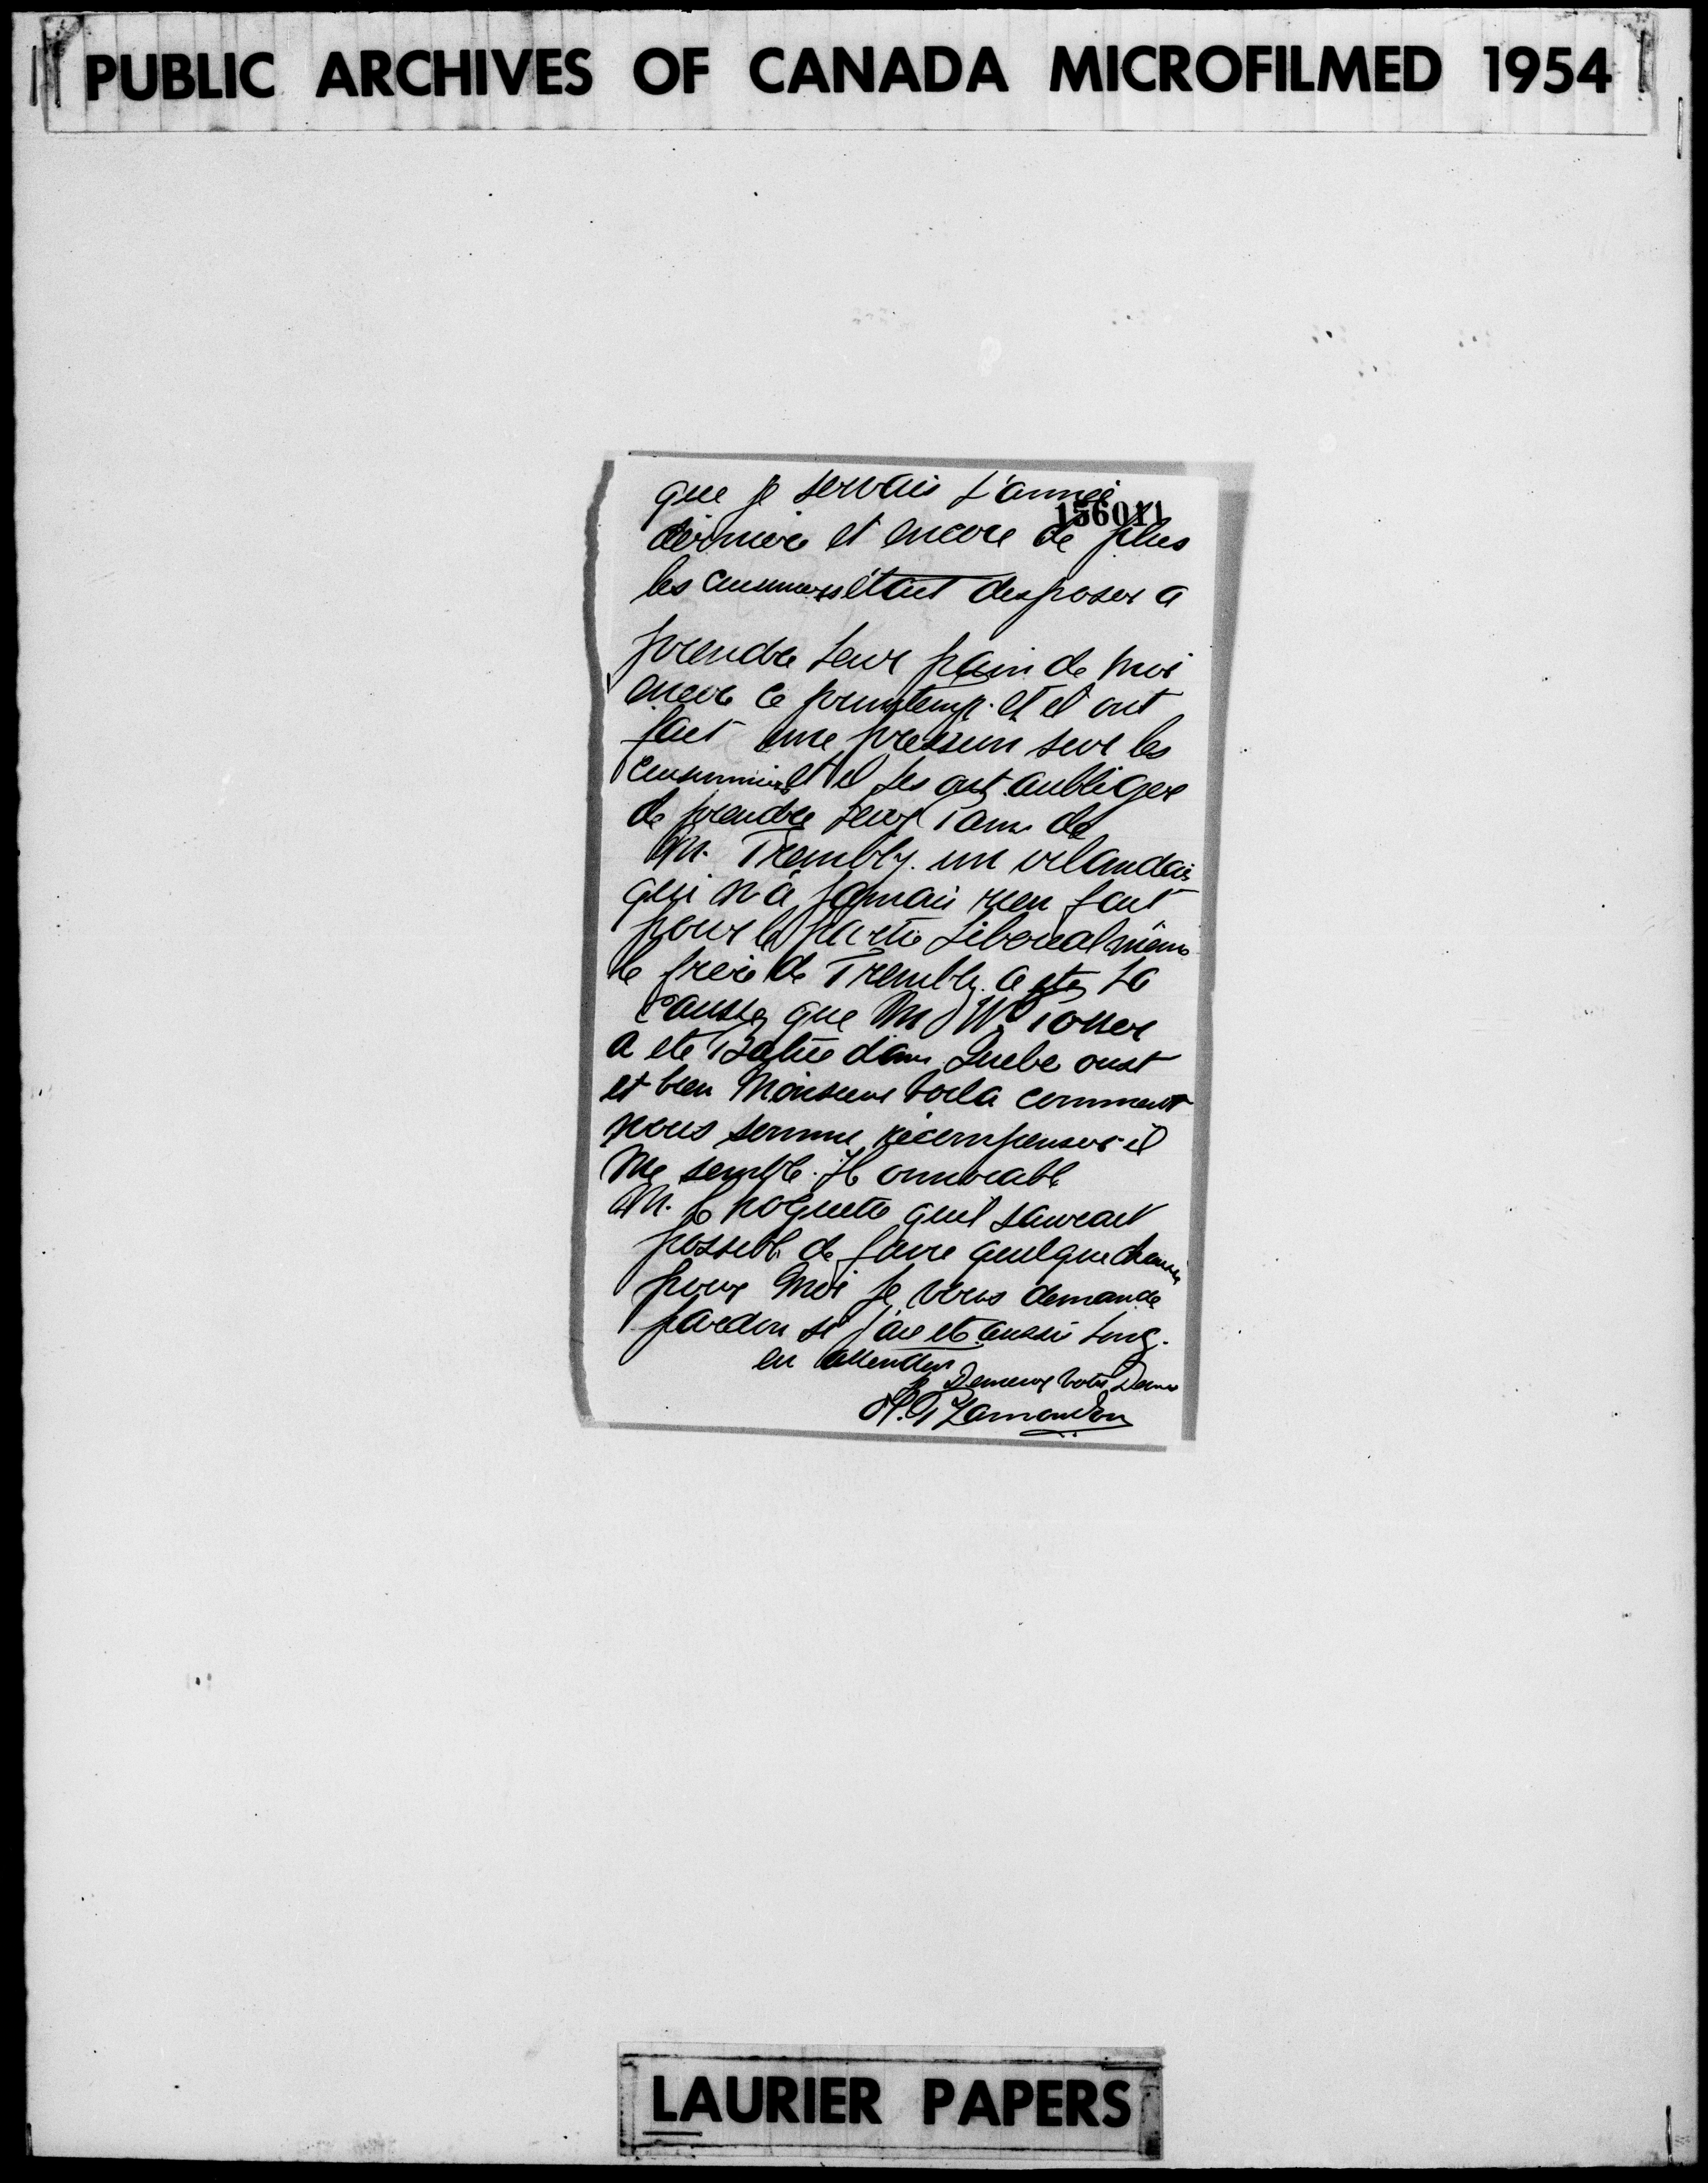 PUBLIC ARCHIVES OF CANADA MICROFILMED 1954
que je servais l'année
156011
dérniere et encore de plus
les était desposer a
prendre leur pain de moi
encore ce printemp. et il ont
fait une pression sur les
et il les ont aubliger
de prendre leur de
M. Trembly. un irlandais
qui n'a jamais rien fait
pour le partie Liberal même
le frere de Trembly. a ete la
causse que M Wm
a ete dans Quebe oust
et bien Monsieur voila comment
nous somme récompenser il
me semble. Honnorable
M. Choquette quil saurait
possible de faire quelque chause
pour moi je vous demande
pardon si j'ai ete aussi long.
en attendan
je Demeure votre
Lamondon
LAURIER PAPERS